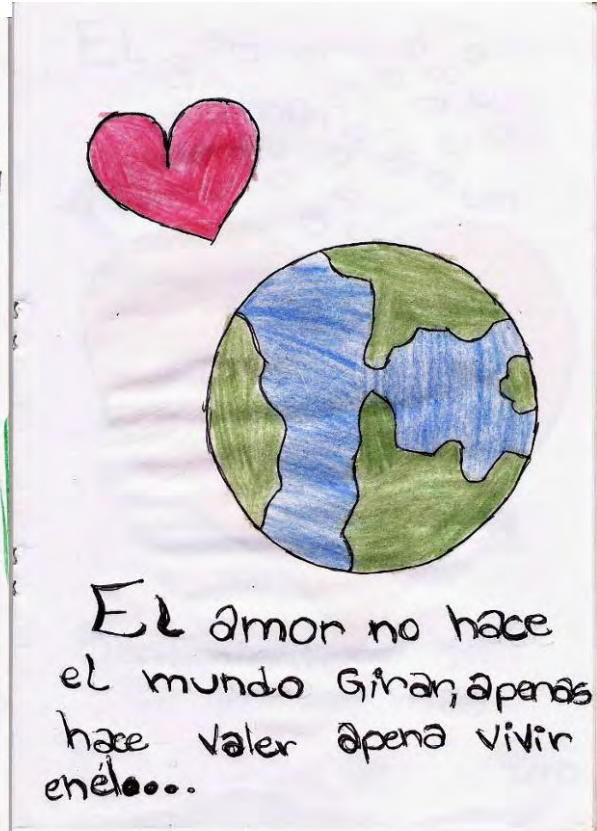 El amor no hace
el mundo Girar, apenas
hace valer apena vivir
en él....